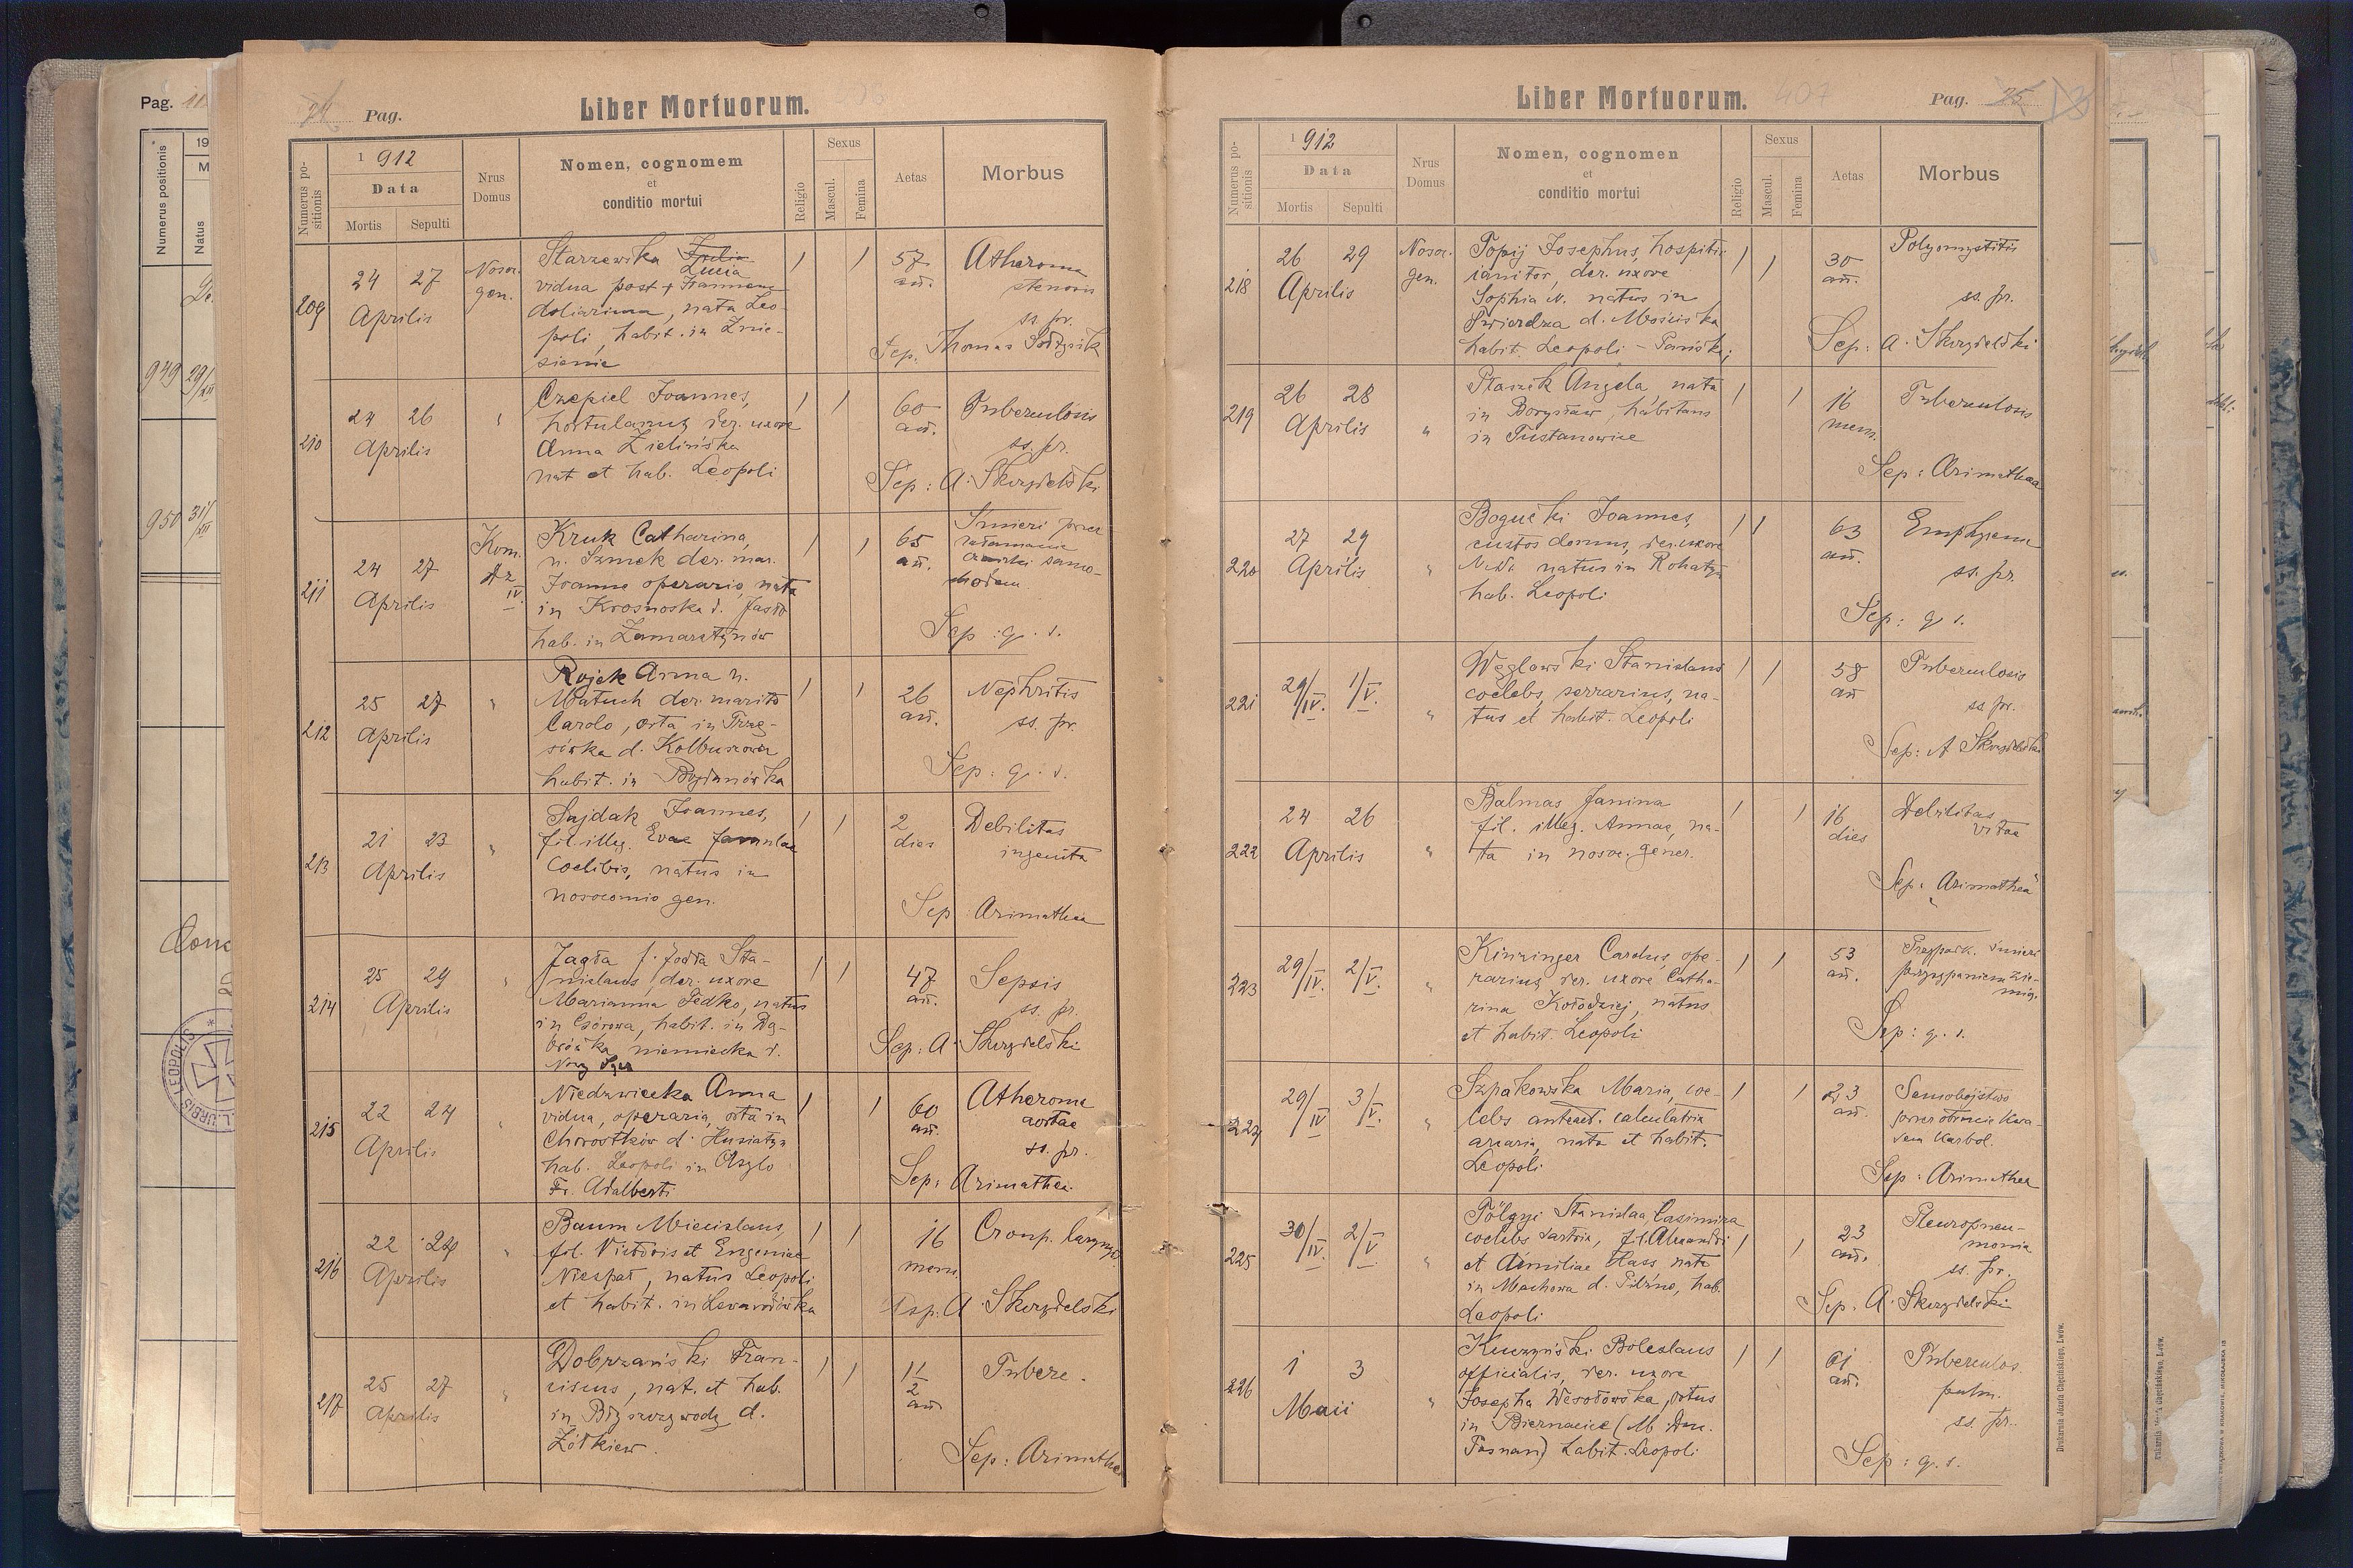 Pag. 11
Numerus positionis
19
M
Natus
949 29/XII
950 31/XII
24 Pag.
Liber Mortuorum.
Numerus positionis
1912
Data
Mortis
Sepulti
Nrus Domus
Nomen, cognomem
et
conditio mortui
Religio
Sexus
Mascul.
Femina
Aetas
Morbus
209
24 27
Aprilis
Nosoc.
gen.
Starzewska Julia
Lucia
vidua post +
doliarium, nata Leo-
poli, habit. in Znie-
sienie
1 1
57
an.
Atheroma
stenosis
ss. pr.
Sep. Thomas Sołtysik
210
24 26
Aprilis
"
Czepiel Joannes,
hortulanus der. uxore
Anna Zielińska
nat et hab. Leopoli
1 1
60
an.
Tuberculosis
ss. pr.
Sep: A. Skrzydelski
211
24 27
Aprilis
Kom.
Dz
IV
Kruk Catharina,
n. Szmek der. mar.
Joanne operario, nata
in Krosnoska d. Jasło
hab. in Zamarstynów
1 1
65
an.
Śmierć przez
załamanie
czaszki samo-
chodem
Sep: g. s.
212
25 27
Aprilis
"
Rojek Anna n.
Matuch der. marito
Carolo, orta in Trzę-
sówka d. Kolbuszowa
habit. in Bogdanówka
1 1
26
an.
Nephritis
ss. pr.
Sep: g. s.
213
21 23
Aprilis
"
Sajdak Joannes,
fil. illeg. Evae famulae
coelibis, natus in
nosocomio gen.
1 1
2
dies
Debilitas
ingenita
Sep: Arimathea
214
25 29
Aprilis
"
Jagła f. Jodła Sta-
nislaus, der. uxore
Marianna Fedko, natus
in habit. in Dą-
brówka niemiecka d.
Nowy Sącz
1 1
47
an.
Sepsis
ss. pr.
Sep: A. Skrzydelski
215
22 24
Aprilis
"
Niedzwiecka Anna
vidua, operaria, orta in
Chorostków d. Husiatyn
hab. Leopoli in Asylo
Fr. Adalberti
1 1
60
an.
Atheroma
aortae
ss. pr.
Sep: Arimathea
216
22 24
Aprilis
"
Baum Miecislaus,
fil. Victoris et Eugeniae
Niespał, natus Leopoli
et habit. in Lewandówka
1 1
16
mens.
Croup. laryngis
Sep: A. Skrzydelski
217
25 27
Aprilis
"
Dobrzański Fran-
ciscus, nat. et hab.
in Błyszczywody d.
Żółkiew.
1 1
1 1/2
an.
Tuberc.
Sep: Arimathea
Liber Mortuorum.
407
Pag. 25
13
Numerus positionis
1912
Data
Mortis
Sepulti
Nrus Domus
Nomen, cognomen
et
conditio mortui
Religio
Sexus
Mascul.
Femina
Aetas
Morbus
218
26 29
Aprilis
Nosoc.
gen.
Topij Josephus, hospitii
ianitor, der. uxore
Sophia N. natus in
Twierdza d. Mościska
habit. Leopoli - Pańskj
1 1
30
an.
Polyomystitis
ss. pr.
Sep: A. Skrzydelski
219
26 28
Aprilis
"
Ptaszek Angela nata
in Borysław, habitans
in Tustanowice
1 1
16
mens.
Tuberculosis
Sep: Arimathea
220
27 29
Aprilis
"
Bogucki Joannes,
custos domus, der. uxore
natus in Rohatyn
hab. Leopoli
1 1
63
an.
Emphysema
ss. pr.
Sep: g s.
221
29/IV. 1/V.
"
Węglowski Stanislaus
coelebs, serrarius, na-
tus et habit. Leopoli
1 1
58
an
Tuberculosis
ss. pr.
Sep: A Skrzydelski
222
24 26
Aprilis
"
Balmas Janina
fil. illeg. Annae, na-
ta in nosoc. gener.
1 1
16
dies
Debilitas
vitae
Sep: Arimathea
223
29/IV. 2/V.
"
Kinzinger Carolus, ope-
rarius der. uxore Catha-
rina Kołodziej, natus
et habit. Leopoli
1 1
53
an.
Przypadk. śmierć
przysypaniem zie-
mią.
Sep: g. s.
224
29/IV 3/V.
"
Szpakowska Maria, coe-
lebs calculatrix
nata et habit.
Leopoli
1 1
23
an.
Samobójstwo
przez otrucie kwa-
sem karbol.
Sep: Arimathea
225
30/IV. 2/V.
"
Pölgyi Stanislaa, Casimira
coelebs sartrix, fil. Alexandri
et Aemiliae Hass nata
in Machowa d. Pilzno, hab.
Leopoli
1 1
23
an.
Pleuropneu-
monia
ss. pr.
Sep. A. Skrzydelski
226
1 3
Maii
"
Kuczyński Boleslaus
officialis, der. uxore
Josepha Wesołowska, ortus
in Biernacice (M. Duc.
Posnan) habit. Leopoli
1 1
61
an.
Tuberculos.
pulm.
ss. pr.
Sep: g. s.
Drukarnia Józefa Chęcińskiego, Lwów.